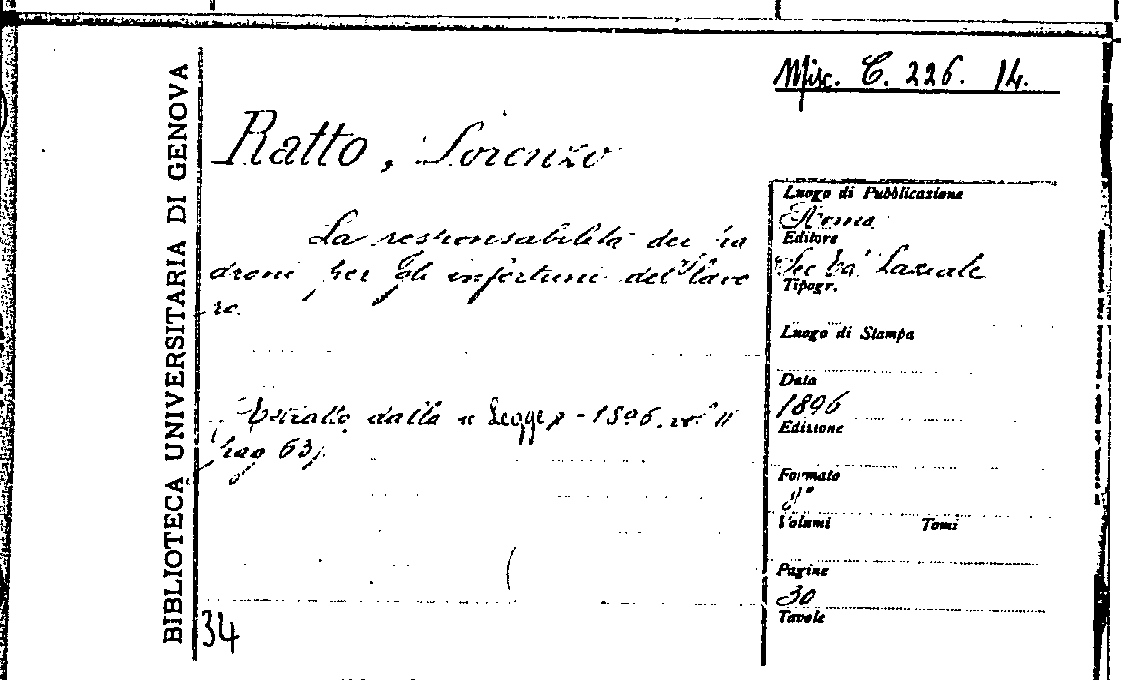 Misc. C. 226. 14.
BIBLIOTECA UNIVERSITARIA DI GENOVA
Ratto, Lorenzo
La responsabilità dei pa
droni per gli infortuni del lavo
ro.
(Estratto dalla « Legge » - 1896. vol II
pag 63)
34
Luogo di Pubblicazione
Roma
Editore
Soc Ed. Laziale
Tipogr.
Luogo di Stampa
Data
1896
Edizione
Formato
8°
Volumi Tomi
Pagine
30
Tavole